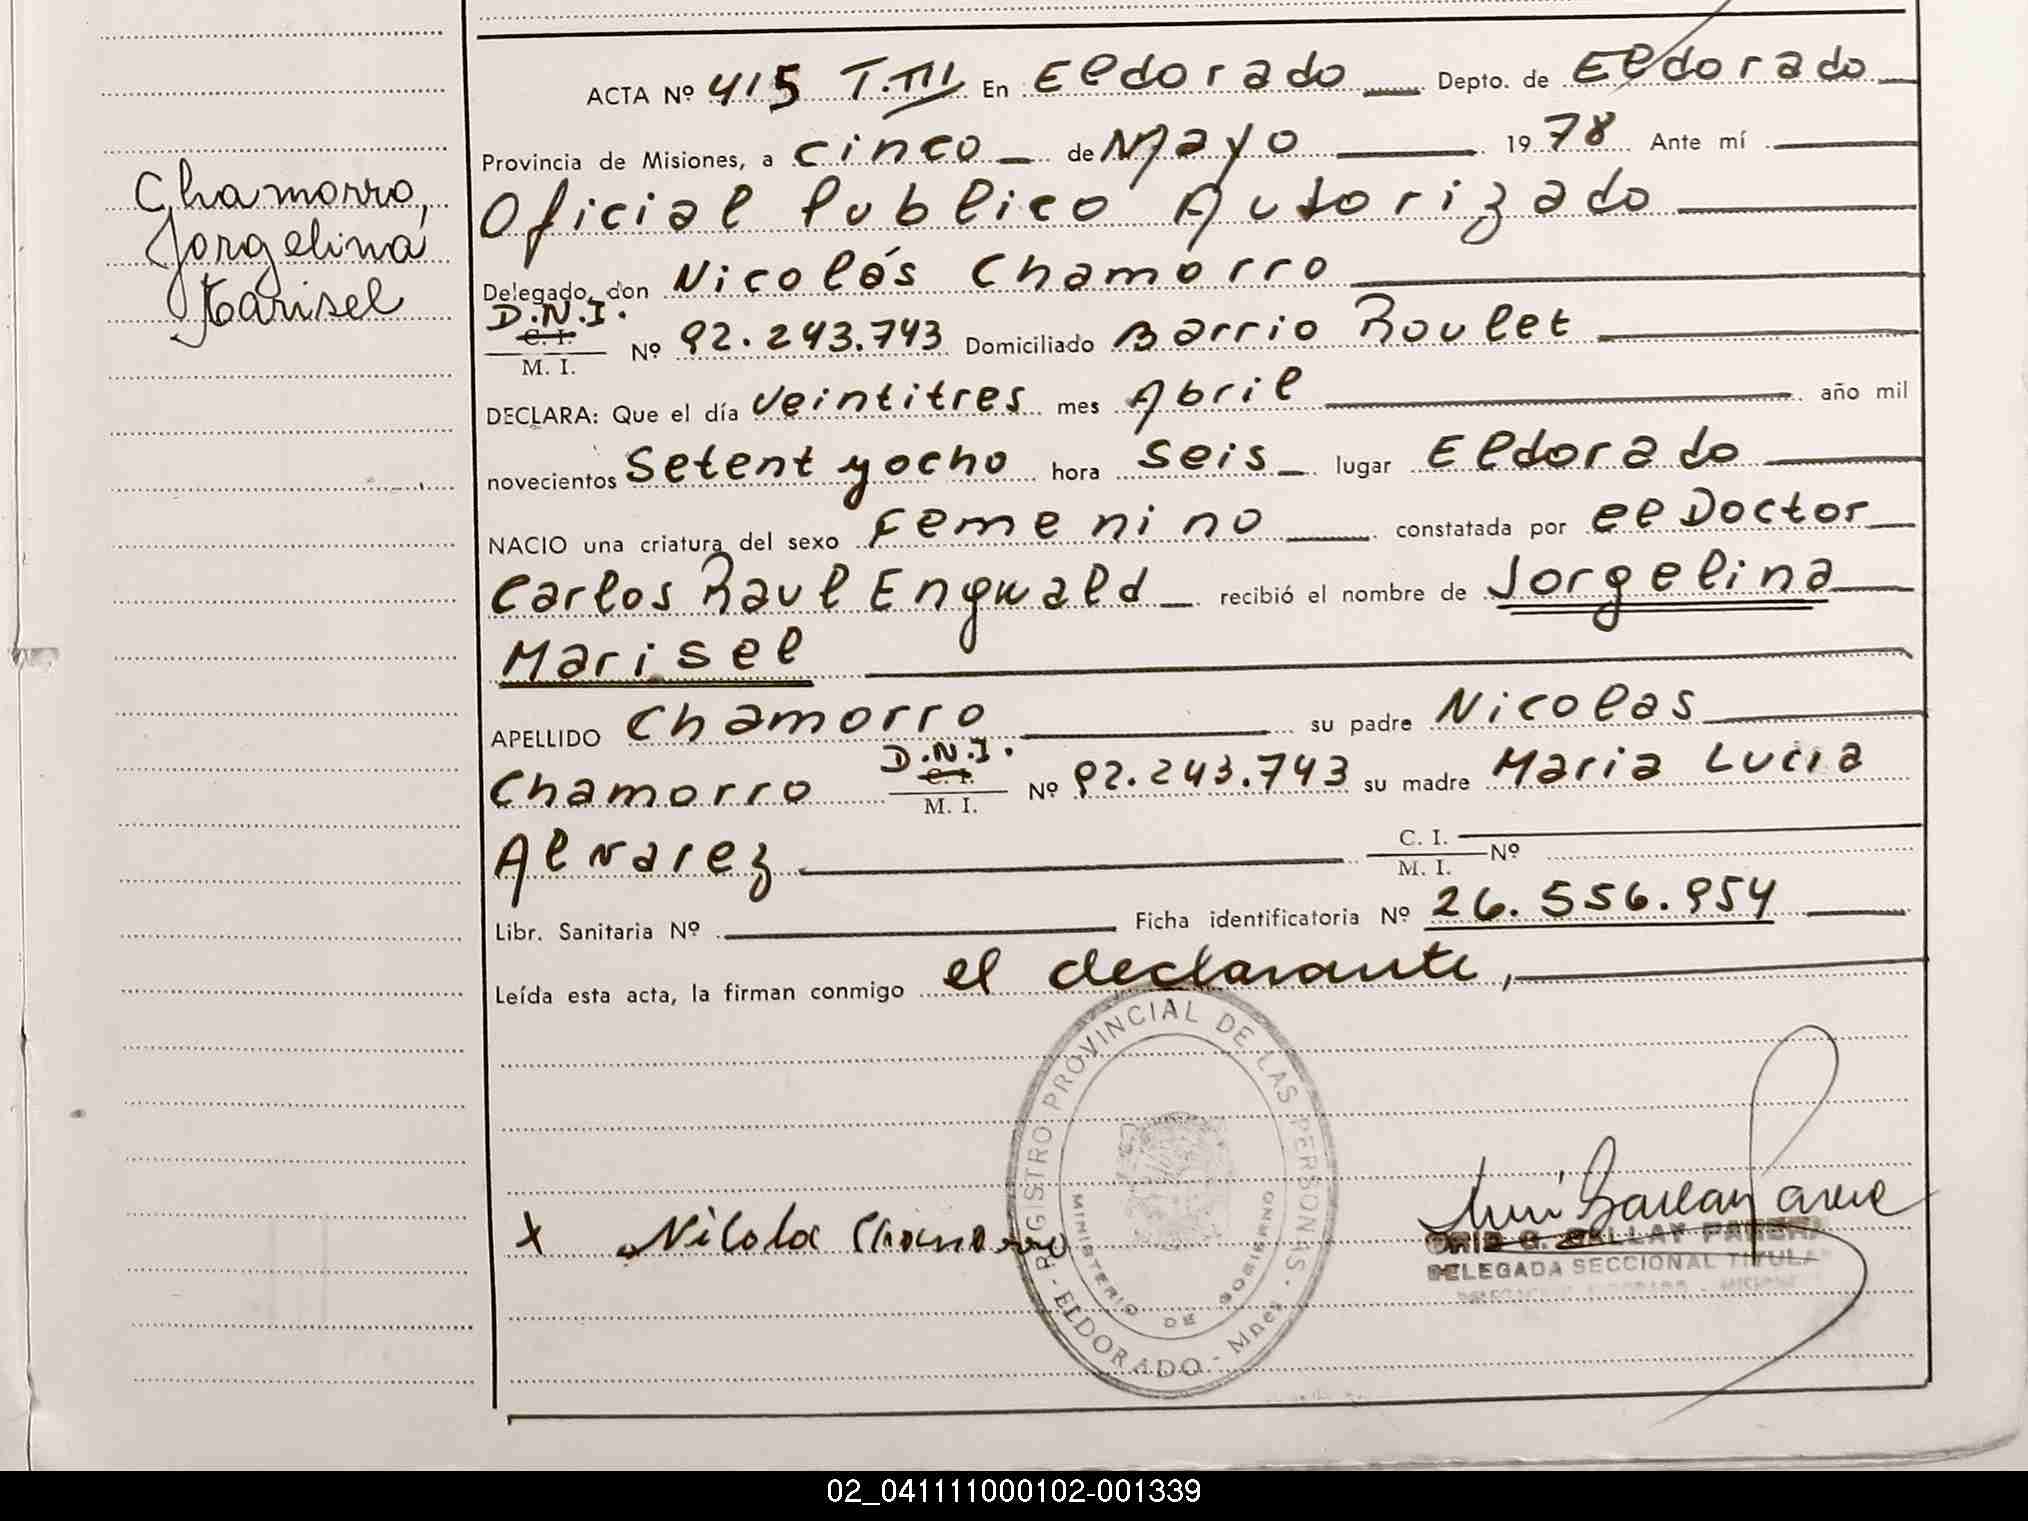 ACTA Nº 415 T.III En Eldorado Depto. de Eldorado
Provincia de Misiones, a cinco de Mayo 1978 Ante mí
Oficial Publico Autorizado
Chamorro,
Jorgelina
Marisel
Delegado, don Nicolás Chamorro
D.N.I.
C. I.
M. I. Nº 92.243.743 Domiciliado Barrio Roulet
DECLARA: Que el día veintitres mes Abril año mil
novecientos Setent yocho hora seis lugar Eldorado
NACIO una criatura del sexo Femenino constatada por el Doctor
Carlos Raul Engwald recibió el nombre de Jorgelina
Marisel
APELLIDO Chamorro su padre Nicolas
Chamorro D.N.I. C. I. M. I. Nº 92.243.743 su madre Maria Lucia
Alvarez C. I. M. I. Nº
Libr. Sanitaria Nº Ficha identificatoria Nº 26.556.954
Leída esta acta, la firman conmigo el declarante,
REGISTRO PROVINCIAL DE LAS PERSONAS
MINISTERIO DE GOBIERNO
- ELDORADO - Mnes.
x Nicola Chamorro
G. BALLAY PARERA
DELEGADA SECCIONAL TITULAR
02_041111000102-001339